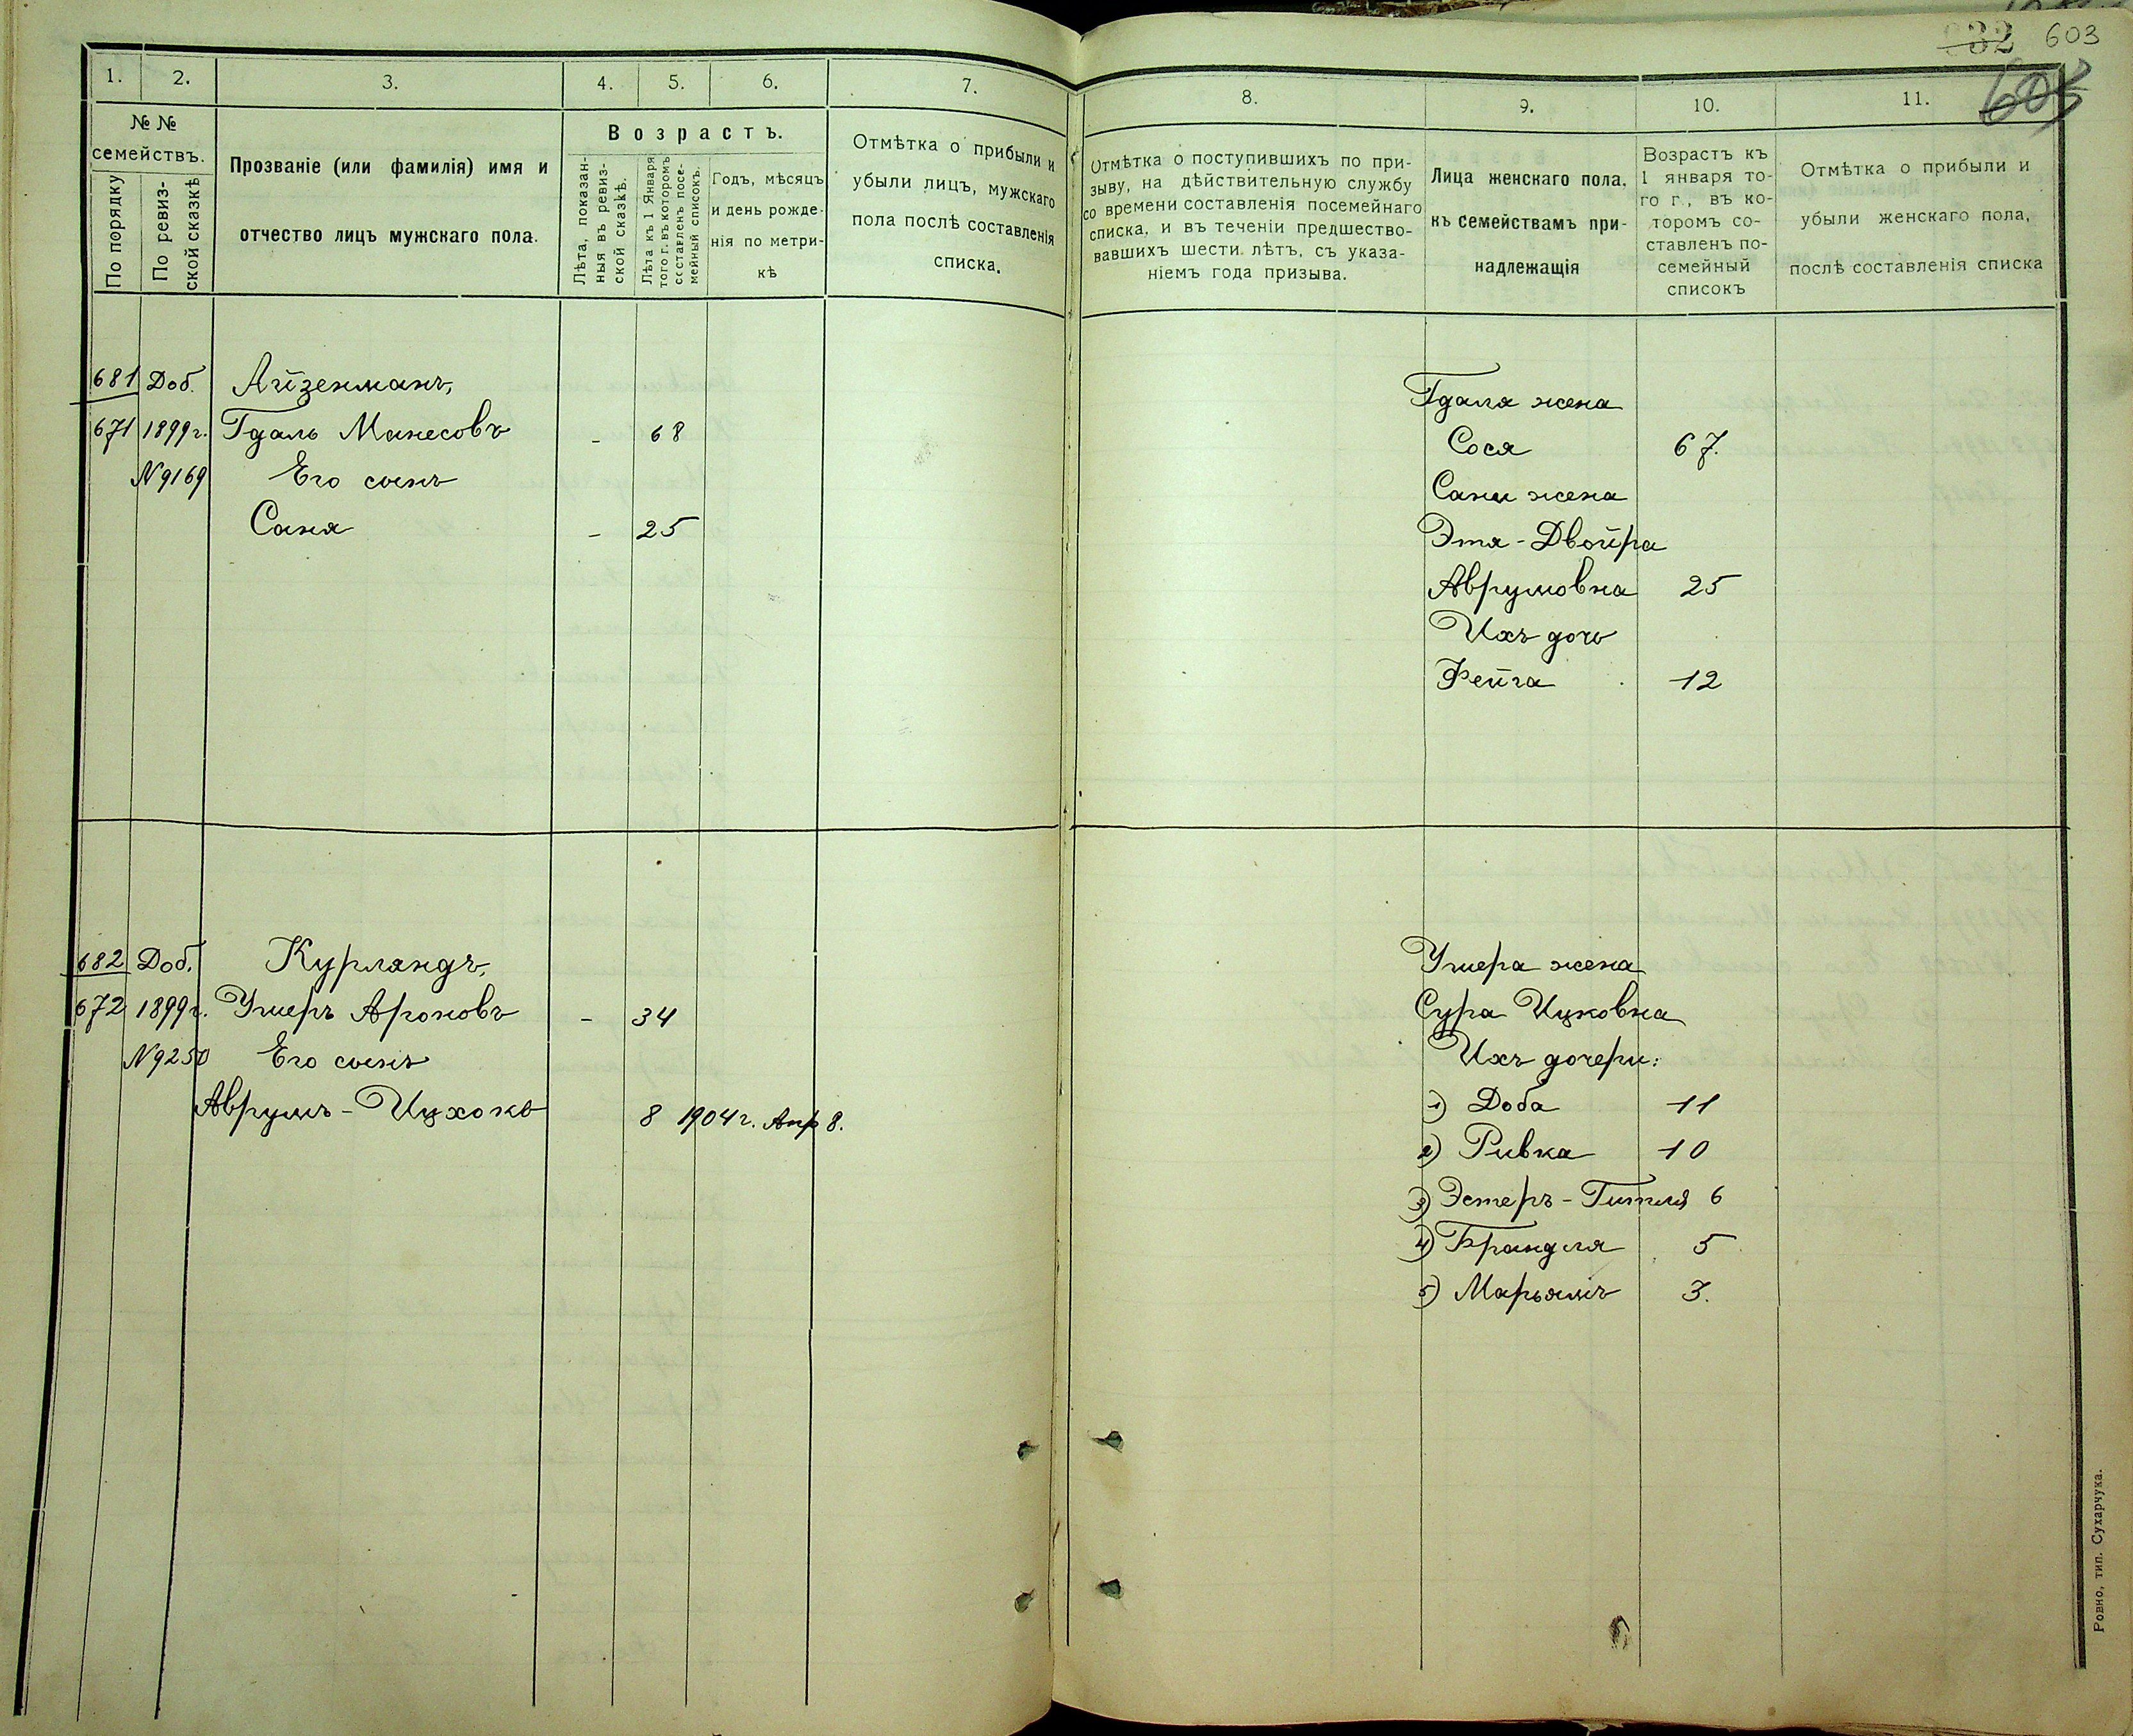 632 603
605
1. 2. 3. 4. 5. 6. 7.
№ №
семействъ.
По порядку
По ревиз-
ской сказкѣ
Прозваніе (или фамилія) имя и
отчество лицъ мужскаго пола.
Возрастъ.
Лѣта, показан-
ныя въ ревиз-
ской сказкѣ.
Лѣта къ 1 Января
того г. въ которомъ
составленъ посе-
мейный списокъ.
Годъ, мѣсяцъ
и день рожде-
нія по метри-
кѣ
Отмѣтка о прибыли и
убыли лицъ, мужскаго
пола послѣ составленія
списка.
681 Доб. Айзенманъ,
671 1899 г. Гдаль Манесовъ - 68
№ 9169 Его сынъ
Саня - 25
682 Доб. Курляндъ,
672 1899 г. Ушеръ Ароновъ - 34
№ 9250 Его сынъ
Аврумъ-Ицхокъ 8 1904 г. Апр 8.
8. 9. 10. 11.
Отмѣтка о поступившихъ по при-
зыву, на дѣйствительную службу
со времени составленія посемейнаго
списка, и въ теченіи предшество-
вавшихъ шести лѣтъ, съ указа-
ніемъ года призыва.
Лица женскаго пола,
къ семействамъ при-
надлежащія
Возрастъ къ
1 января то-
го г., въ ко-
торомъ со-
ставленъ по-
семейный
списокъ
Отмѣтка о прибыли и
убыли женскаго пола,
послѣ составленія списка
Гдаля жена
Сося 67.
Сани жена
Этя-Двойра
Аврумовна 25
Ихъ дочь
Фейга 12
Ушера жена
Сура Ицковна
Ихъ дочери:
1) Доба 11
2) Ривка 10
3) Эстеръ-Гитля 6
4) Брандля 5
5) Марьямъ 3.
Ровно, тип. Сухарчука.